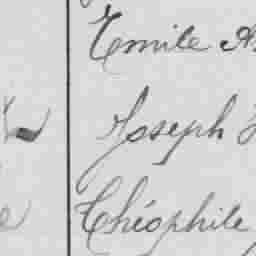 Emile
Joseph
Théophile